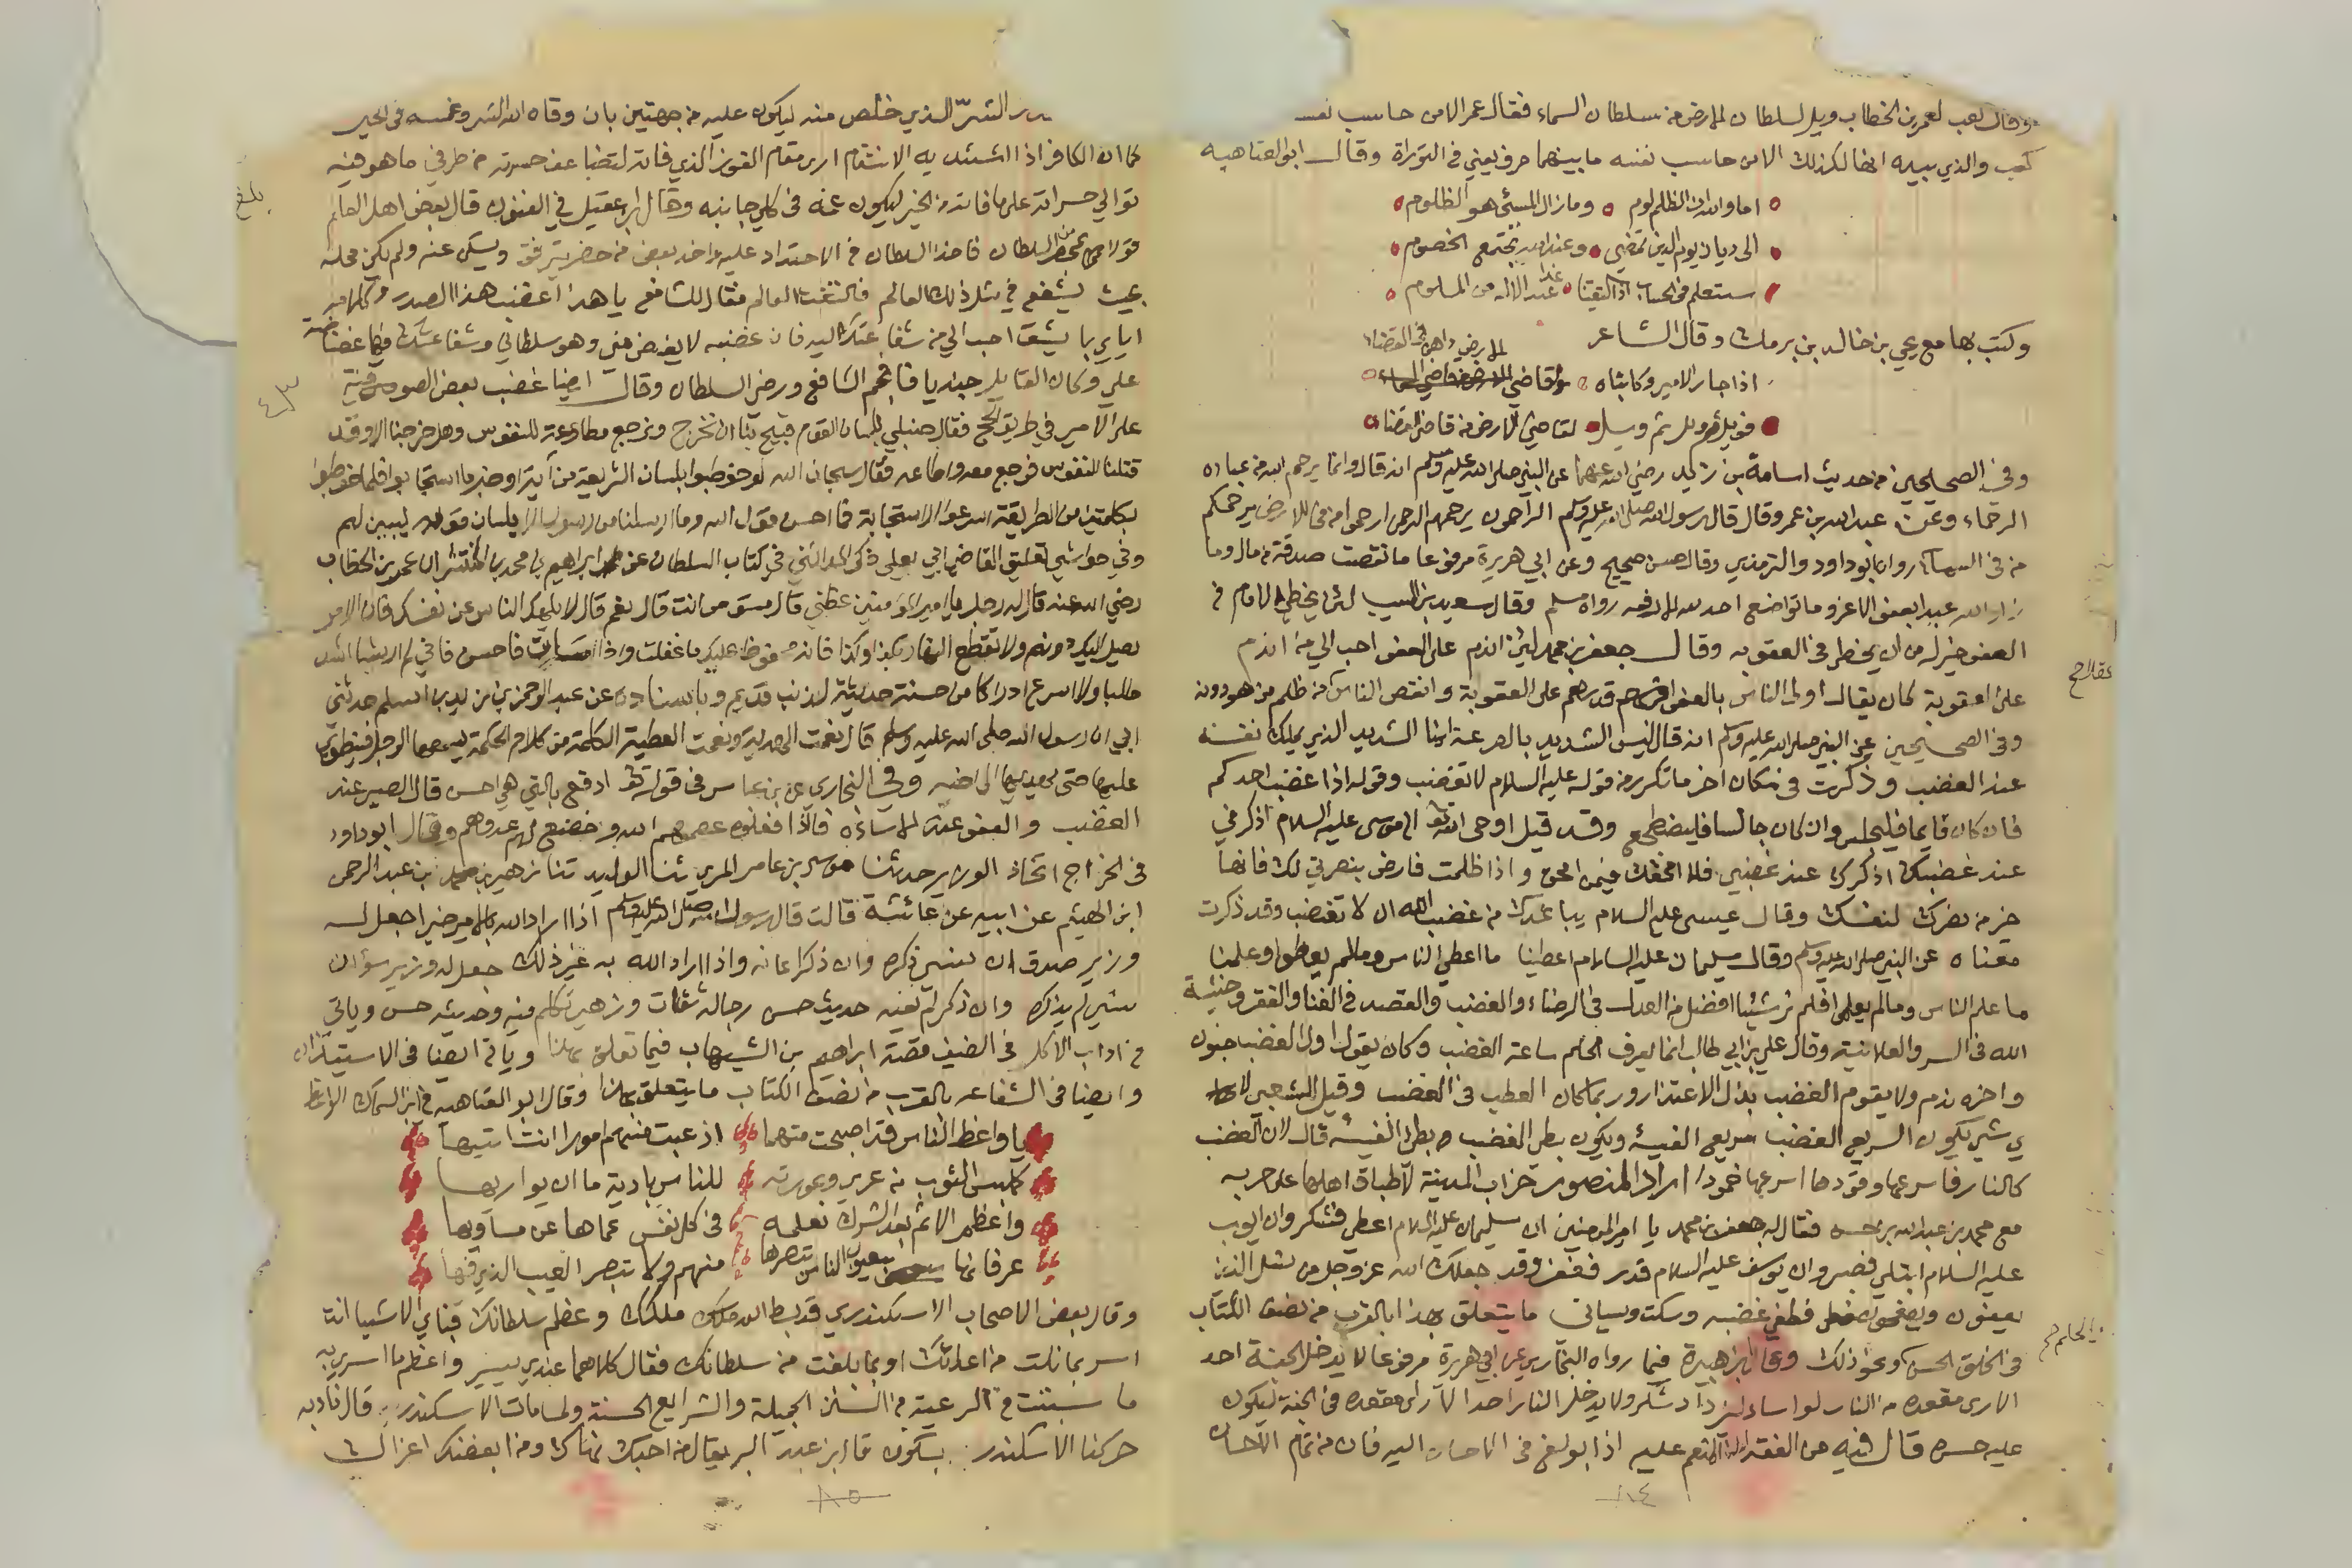 وقال كعب لعمر بن الخطاب ويل لسلطان الارض من سلطان السماء فقال عمر الا من حاسب نفسه
كعب والذي بيده انها لكذلك الا من حاسب نفسه ما بينهما حرف يعني في التوراة وقال ابو العتاهية
اما والله ان الظلم لوم وما زال المسئ هو الظلوم
الى ديان يوم الدين نمضي وعند الله تجتمع الخصوم
ستعلم في الحساب اذا التقينا غدا عند الاله من الملوم
وكتب بها مع يحيى بن خالد بن برمك وقال الشاعر
اذا جار الامير وكاتباه وقاضي الارض داهن في القضاء
فويل ثم ويل ثم ويل لقاضي الارض من قاضي القضاء
وفي الصحيحين من حديث اسامة بن زيد رضي الله عنهما عن النبي صلى الله عليه وسلم انه قال وانما يرحم الله من عباده
الرحماء وعن عبد الله بن عمر وقال قال رسول الله صلى الله عليه وسلم الراحمون يرحمهم الرحمن ارحموا من في الارض يرحمكم
من في السماء رواه ابو داود والترمذي وقال حسن صحيح وعن ابي هريرة مرفوعا ما نقصت صدقة من مال وما
زاد الله عبدا بعفو الا عزا وما تواضع احد لله الا رفعه رواه مسلم وقال سعيد بن المسيب لئن يخطئ الامام في
العفو خير له من ان يخطئ في العقوبه وقال جعفر بن محمد لئن اندم على العفو احب الي من اندم
على العقوبة كان يقال اولى الناس بالعفو اقدرهم على العقوبة وانقص الناس من ظلم من هو دونه
وفي الصحيحين عن النبي صلى الله عليه وسلم انه قال ليس الشديد بالصرعة انما الشديد الذي يملك نفسه
عند الغضب وذكرت في مكان اخر ما تكرر من قوله عليه السلام لا تغضب وقوله اذا غضب احدكم
فان كان قايما فليجلس وان كان جالسا فليضطجع وقد قيل اوحى الله الى موسى عليه السلام اذكرني
عند غضبك اذكرك عند غضبي فلا امحقك فيمن امحق واذا ظلمت فارض بنصرتي لك فانها
خير من نصرك لنفسك وقال عيسى عليه السلام يباعدك من غضب الله ان لا تغضب وقد ذكرت
معناه عن النبي صلى الله عليه وسلم وقال سليمان عليه السلام اعطينا ما اعطي الناس وما لم يعطوا وعلمنا
ما علم الناس وما لم يعلموا فلم نر شيئا افضل من العدل في الرضاء والغضب والقصد في الغنا والفقر وخشية
الله في السر والعلانية وقال علي بن ابي طالب انما يعرف الحلم ساعة الغضب وكان يقول اول الغضب جنون
واخره ندم ولا يقوم الغضب بذل الاعتذار وربما كان العطب في الغضب وقيل للشعبي لاي
شيء يكون السريع الغضب سريع الفيئة ويكون بطيء الغضب بطيء الفيئة قال لان الغضب
كالنار فاسرعها وقودها اسرعها خمودا اراد المنصور خراب المدينة لاطباق اهلها على حربه
مع محمد بن عبد الله بن حسن فقال له جعفر بن محمد يا امير المومنين ان سليمان عليه السلام اعطي فشكر وان ايوب
عليه السلام ابتلي فصبر وان يوسف عليه السلام قدر فغفر وقد جعلك الله عز وجل من نسل الذين
يعفون ويصفحون فطفي غضبه وسكت وسياتي ما يتعلق بهذا بالقرب من نصف الكتاب
في الخلق الحسن ونحو ذلك وقال ابن هبيرة فيما رواه البخاري عن ابي هريرة مرفوعا لا يدخل الجنة احد
الا ارى مقعده من النار لو اسا ليزداد شكرا ولا يدخل النار احد الا ارى مقعده في الجنة ليكون
عليه حسرة قال فيه من الفقه ان المنعم عليه اذا بولغ في الاحسان اليه فان من تمام الاحسان
٨٤
الشر الذي خلص منه ليكون عليه من جهتين بان وقاه الله الشر وغمسه في الخير
كما ان الكافر اذا اشتد به الانتقام ارى مقام الفوز الذي فاته لتضاعف حسرته من طرفي ما هو فيه
توالي حسراته على ما فاته من الخير ليكون غمه في كلي جانبيه وقال ابن عقيل في الفنون قال بعض اهل العلم
بحضر السلطان فاخذ السلطان في الاحتداد عليه واخذ بعض من حضر يترفق ويسكن غضبه ولم يكن محله
بحيث يشفع في مثل ذلك العالم فالتفت العالم فقال للشافع يا هذا غضب هذا الصدر وكلامه
اياي بما يشق احب الي من شفاعتك اليه فان غضبه لا يغض مني وهو سلطاني وشفاعتك في غضاضة
علي وكان القايل حنبليا فافحم الشافع ورضي السلطان وقال ايضا غضب بعض الصوفية
على الامير في طريق الحج فقال حنبلي بلسان القوم قبيح بنا ان نخرج ونرجع مطاوعة للنفوس وهل خرجنا الا وقد
قتلنا النفوس فرجع معه واطاعه فقال سبحان الله لو خوطبوا بلسان الشريعة من آية او خبر ما استجابوا فلما خوطبوا
بكلمتين من الطريقة اسرعوا الاستجابة فما احسن قول الله وما ارسلنا من رسول الا بلسان قومه ليبين لهم
وفي حواشي تعليق القاضي ابي يعلى ذكر المدائني في كتاب السلطان عن ابراهيم بن محمد بن المنتشر ان عمر بن الخطاب
رضي الله عنه قال له رجل يا امير المؤمنين عظني قال ممن انت قال نعم قال لا يلهك الناس عن نفسك فان الامر
يصل اليك دونهم ولا تقطع النهار بكذا وكذا فانه محفوظ عليك ما غفلت واذا اسات فاحسن فاني لم ار شيا اشد
طلبا ولا اسرع ادراكا من حسنة حديثة لذنب قديم وباسناده عن عبد الرحمن بن زيد بن اسلم حدثني
ابي ان رسول الله صلى الله عليه وسلم قال نعمت الهدية ونعمت العطية الكلمة من كلام الحكمة يسمعها الرجل فينطوي
عليها حتى يهديها الى اخيه وفي البخاري عن بن عباس في قوله تعالى ادفع بالتي هي احسن قال الصبر عند
الغضب والعفو عند الاساءة فاذا فعلوه عصمهم الله وخضع لهم عدوهم وقال ابو داود
في الخراج اتخاذ الوزير حدثنا موسى بن عامر المري ثنا الوليد ثنا زهير بن محمد بن عبد الرحمن
ابن الهيثم عن ابيه عن عائشة قالت قال رسول الله صلى الله عليه وسلم اذا اراد الله بالامير خيرا جعل له
وزير صدق ان نسي ذكره وان ذكر اعانه واذا اراد الله به غير ذلك جعل له وزير سوء ان
نسي لم يذكره وان ذكر لم يعنه حديث حسن رجاله ثقات وزهير تكلم فيه وحديثه حسن وياتي
في اداب الاكل في الضيف قصة ابراهيم بن الشهاب فيما تعلق بهذا وياتي ايضا في الاستيذان
وايضا في الشفاعه بالقرب من نصف الكتاب ما يتعلق بهذا وقال ابو العتاهيه في ابن السماك الواعظ
يا واعظ الناس قد اصبحت متهما اذ عبت منهم امورا انت اتيها
كلبس الثوب من عري وعورته للناس بادية ما ان يواريها
واعظم الاثم بعد الشرك نعلمه في كل نفس عماها عن مساويها
عرفانها بعيوب الناس تبصرها منهم ولا تبصر العيب الذي فيها
وقال بعض الاصحاب الاسكندري قد بسط الله ملكك وعظم سلطانك فباي الاشيا انت
اسر بما نلت من اعدائك او بما بلغت من سلطانك فقال كلاهما عندي يسير واعظم ما اسر به
ما سننت في الرعية من السنن الجميلة والشرايع الحسنة ولما مات الاسكندر قال نادبه
حركنا الاسكندر بسكونه قال ابن عبد البر يقال من احبك نهاك ومن ابغضك اغراك
٨٥
بلغ